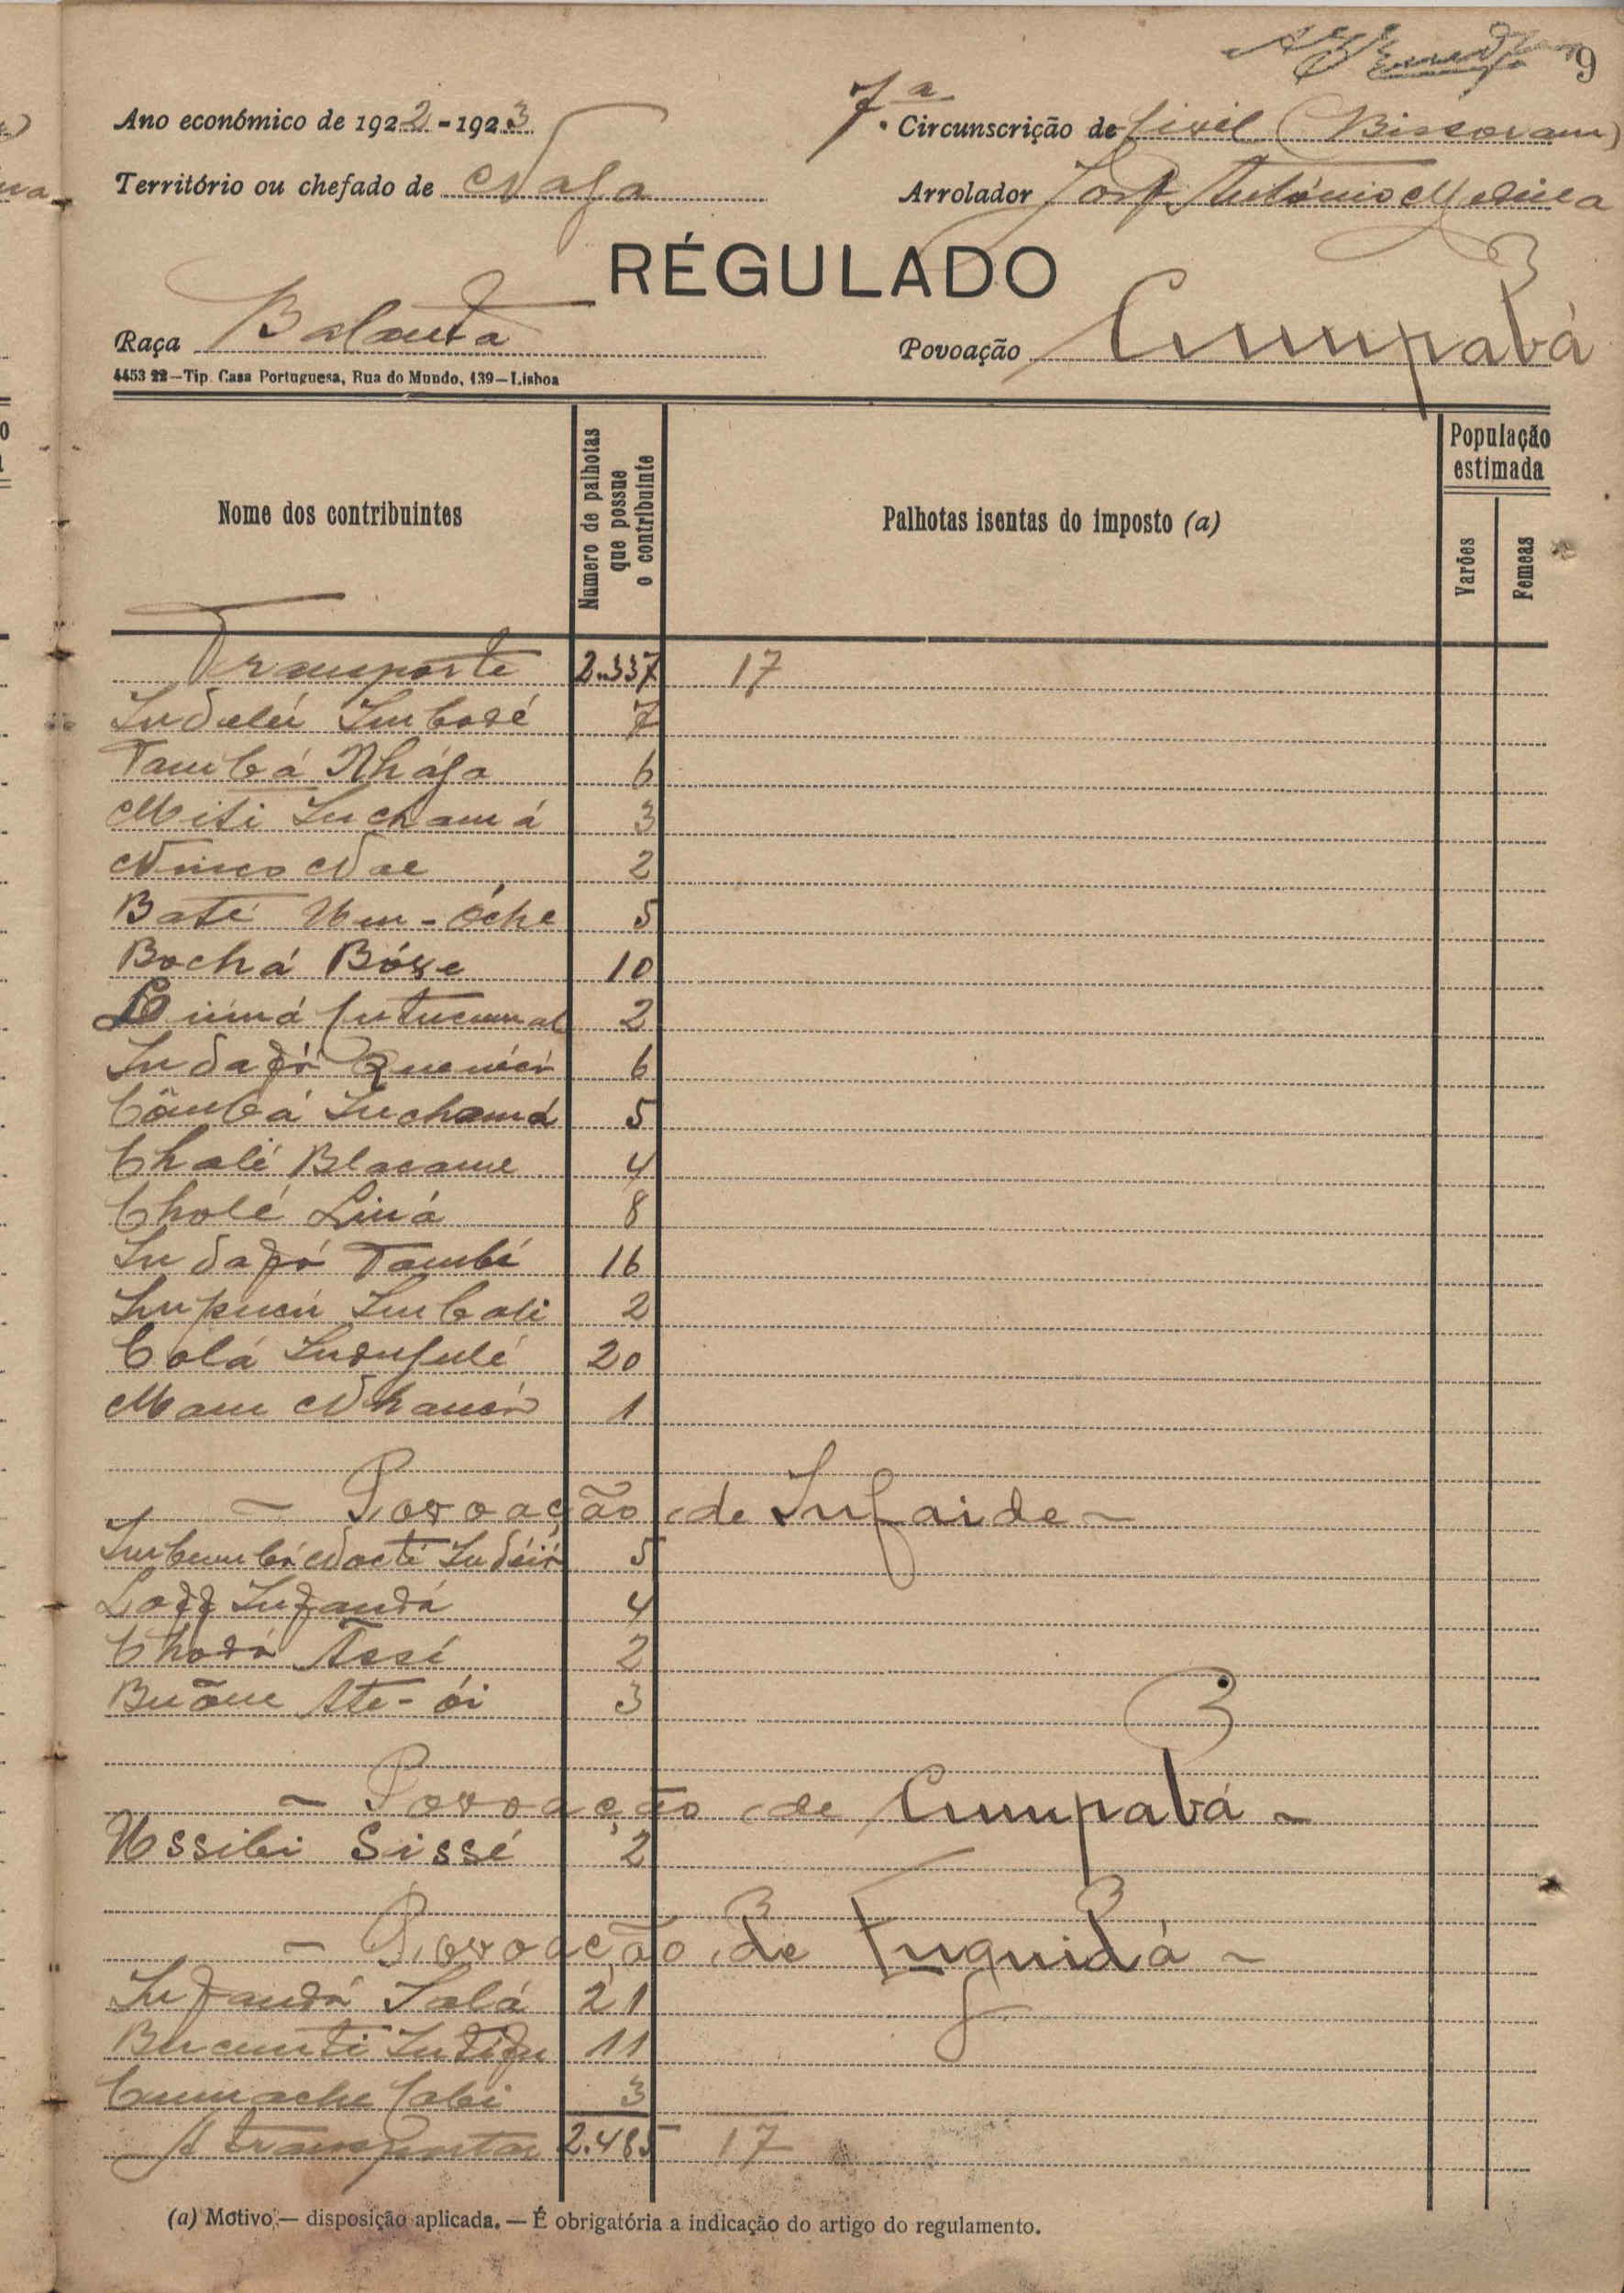 9
Ano económico de 1922-1923
7.ª Circunscrição de Civil (Bissoram)
Território ou chefado de Naga
Arrolador José António Medina
RÉGULADO
Raça Balanta
Povoação Cumpabá
4453 22—Tip. Casa Portuguesa, Rua do Mundo, 139—Lisboa
Nome dos contribuintes
Numero de palhotas que possue o contribuinte
Palhotas isentas do imposto (a)
População estimada
Varões
Femeas
Transporte 2.337 17
Imbodé 7
Tambá Nhága 6
Miti Inchamá 3
Nae 2
Baté Um-óche 5
Bochá Bóxe 10
2
6
Cômbá Inchamá 5
Chalé Blacame 4
Cholé Liná 8
Indafó Tambi 16
Imbali 2
Colá 20
Mam 1
- Povoação de Infaide -
5
4
Chodá Assi 2
Buãne Ate-ói 3
- Povoação de Cumpabá -
Ussibi Sissé 2
- Povoação de Fuguidá -
Infandá Salá 21
11
Cumache Cabi 3
A transportar 2.485 17
(a) Motivo,— disposição aplicada. — É obrigatória a indicação do artigo do regulamento.